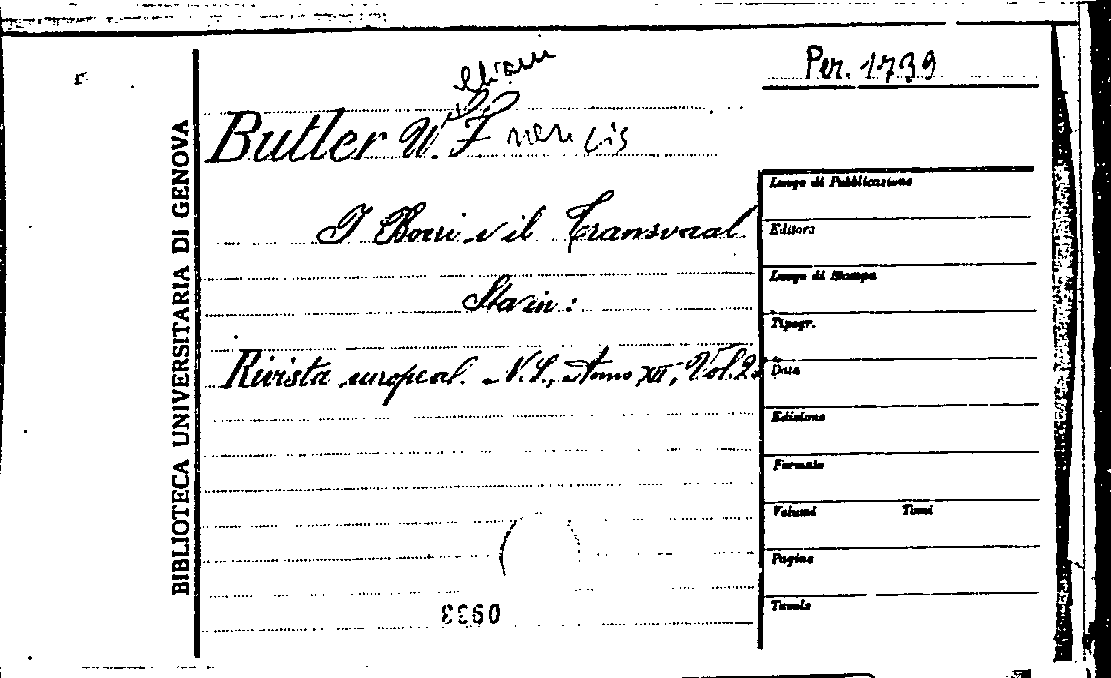 Per. 1739
illiam
Butler W. Francis
I Boeri e il Transvaal
Sta in:
Rivista europea. N. S., Anno XII, Vol. 25
BIBLIOTECA UNIVERSITARIA DI GENOVA
Luogo di Pubblicazione
Editore
Luogo di Stampa
Tipogr.
Data
Edizione
Formato
Volumi Tomi
Pagine
Tavole
0933